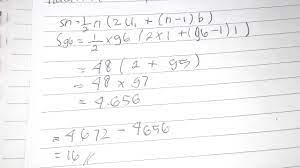 Sn = 1/2 n (2U1 + (n-1) b)
S96 = 1/2 x 96 (2x1 + (96-1) 1)
= 48 (2 + 95)
= 48 x 97
= 4.656
= 4672 - 4656
= 16 //